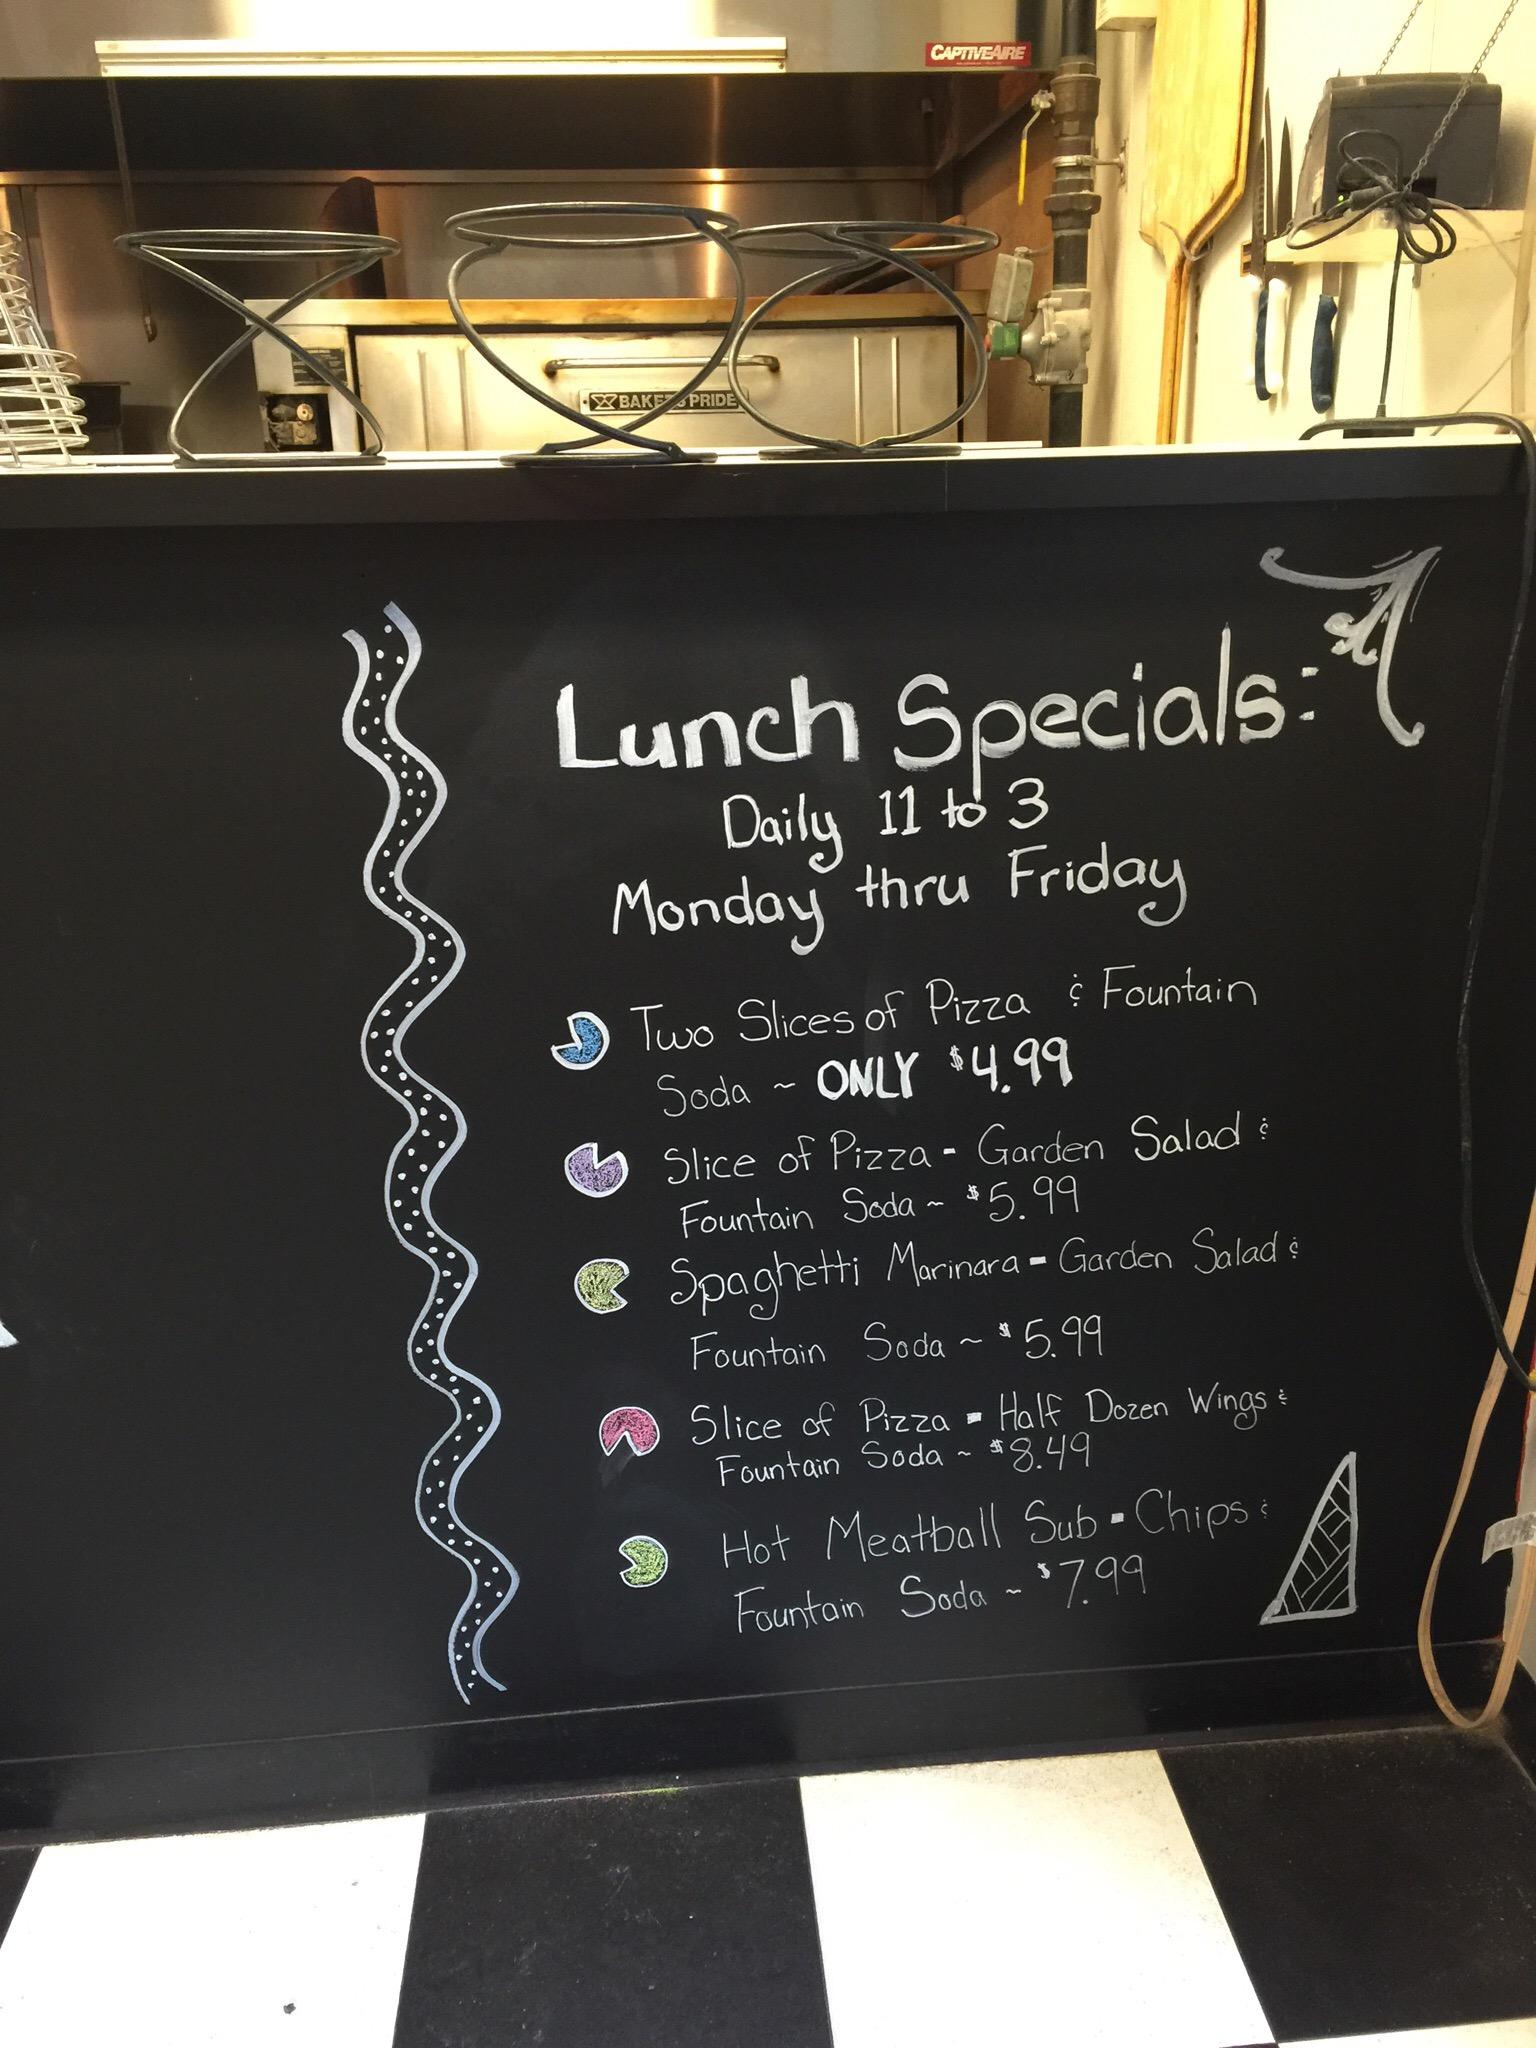 CAPTIVEAIRE
BAKERS PRIDE
Lunch Specials:
Daily 11 to 3
Monday thru Friday
Two Slices of Pizza & Fountain
Soda ~ ONLY $4.99
Slice of Pizza - Garden Salad &
Fountain Soda ~ $5.99
Spaghetti Marinara - Garden Salad &
Fountain Soda ~ $5.99
Slice of Pizza - Half Dozen Wings &
Fountain Soda ~ $8.49
Hot Meatball Sub - Chips &
Fountain Soda ~ $7.99